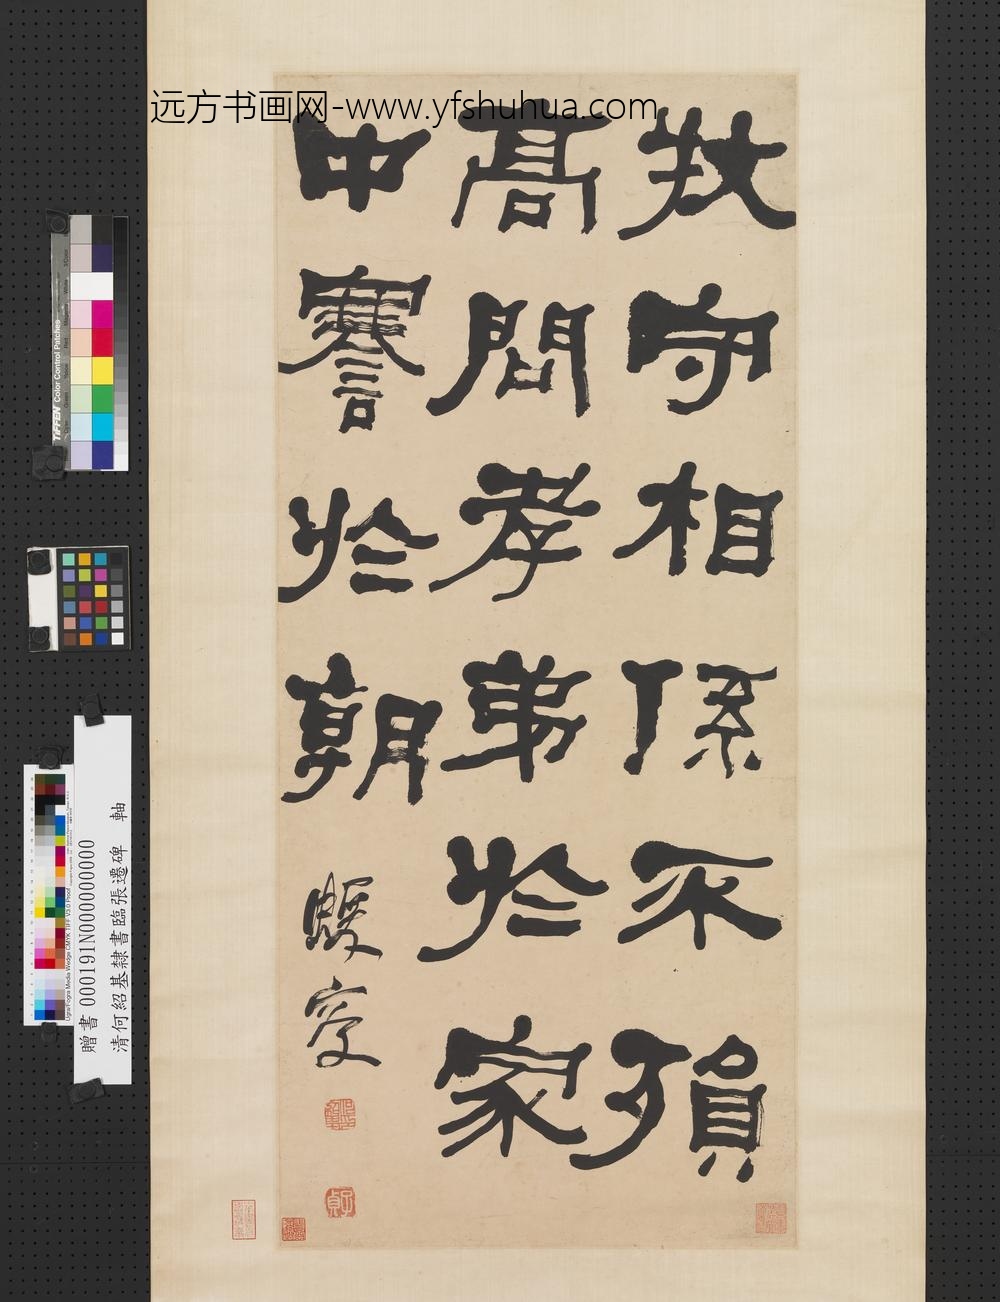 远方书画网-www.yfshuhua.com
牧守相係不殞
高問孝弟於家
中謇於朝
蝯叟
子貞
TIFFEN Color Control Patches
贈書 000191N000000000
清何紹基隸書臨張遷碑 軸